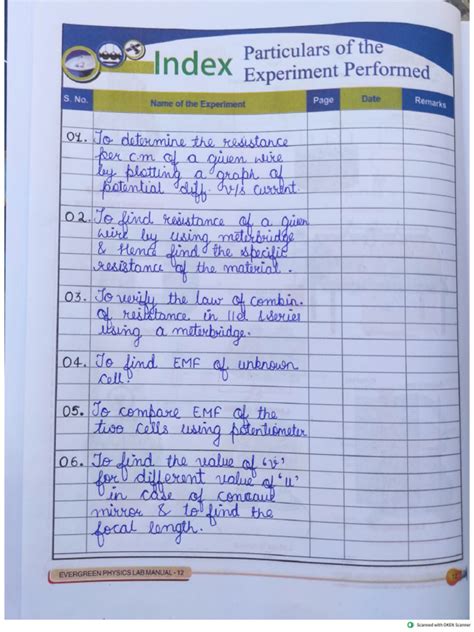 Index Particulars of the
Experiment Performed
S. No. Name of the Experiment Page Date Remarks
01. To determine the resistance
per cm of a given wire
by plotting a graph of
potential diff. v/s current.
02. To find resistance of a given
wire by using meterbridge
& Hence find the specific
resistance of the material.
03. To verify the law of combin.
of resistance in 11el & series
using a meterbridge.
04. To find EMF of unknown
cell.
05. To compare EMF of the
two cells using potentiometer
06. To find the value of 'v'
for different value of 'u'
in case of concave
mirror & to find the
focal length.
EVERGREEN PHYSICS LAB MANUAL - 12
Scanned with OKEN Scanner